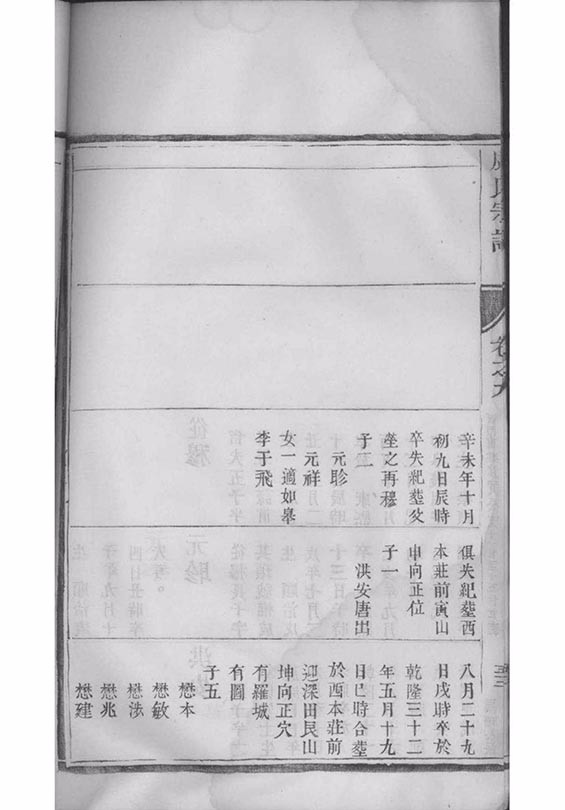 氏宗譜
卷之六
辛未年十月
初九日辰時
卒失紀塟父
塋之再穆
子二
元聄
元祥
女一適如皋
李于飛
俱失紀塟西
本莊前寅山
申向正位
子一
洪安唐出
八月二十九
日戌時卒於
乾隆三十二
年五月十九
日巳時合塟
於酉本莊前
迎深田艮山
坤向正穴
有羅城
有圖
子五
懋本
懋敏
懋涉
懋兆
懋建